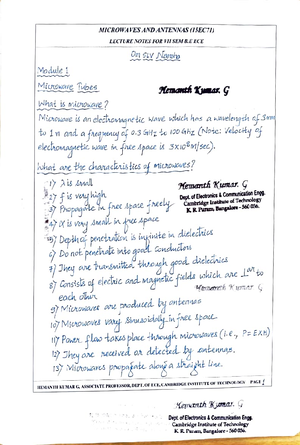 MICROWAVES AND ANTENNAS (15EC71)
LECTURE NOTES FOR VII SEM B.E ECE
Om Sri
Module 1
Microwave Tubes
Hemanth Kumar. G
What is microwave?
Microwave is an electromagnetic wave which has a wavelength of 1mm
to 1m and a frequency of 0.3 GHz to 120 GHz (Note: Velocity of
electromagnetic wave in free space is 3x10⁸m/sec).
What are the characteristics of microwaves?
1) λ is small
2) f is very high
3) Propagate in free space freely
4) α is very small in free space
5) Depth of penetration is infinite in dielectrics
6) Do not penetrate into good conductors
7) They are transmitted through good dielectrics
8) Consists of electric and magnetic fields which are ⊥ar to
each other
9) Microwaves are produced by antennas
10) Microwaves vary sinusoidally in free space
11) Power flow takes place through microwaves (i.e., P=ExH)
12) They are received or detected by antennas.
13) Microwaves propagate along a straight line.
Hemanth Kumar. G
Dept. of Electronics & Communication Engg.
Cambridge Institute of Technology
K. R. Puram, Bangalore - 560 036.
Hemanth Kumar G
HEMANTH KUMAR G, ASSOCIATE PROFESSOR, DEPT. OF ECE, CAMBRIDGE INSTITUTE OF TECHNOLOGY PAGE 1
Hemanth Kumar. G
Dept. of Electronics & Communication Engg.
Cambridge Institute of Technology
K. R. Puram, Bangalore - 560 036.